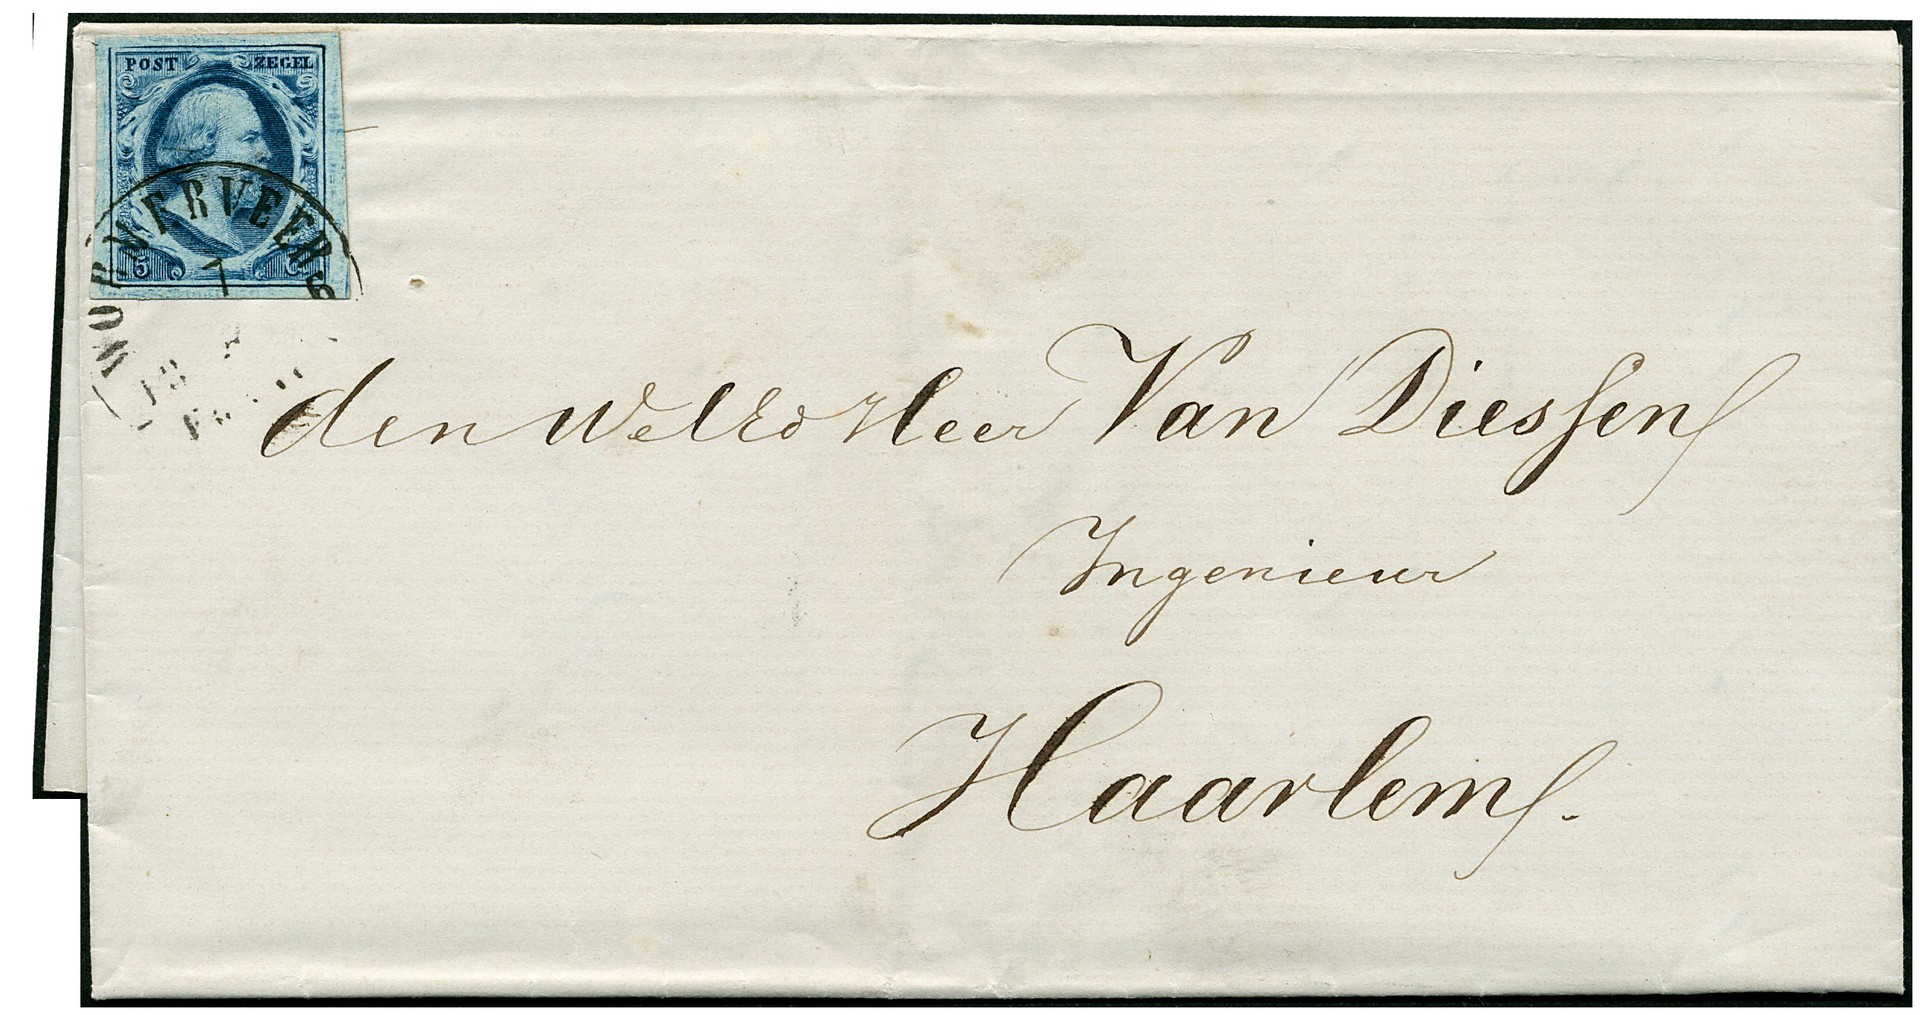 POST ZEGEL
5 C
WORMERVEER
7 6
18
den WelEd Heer Van Diessen
Ingenieur
Haarlem.